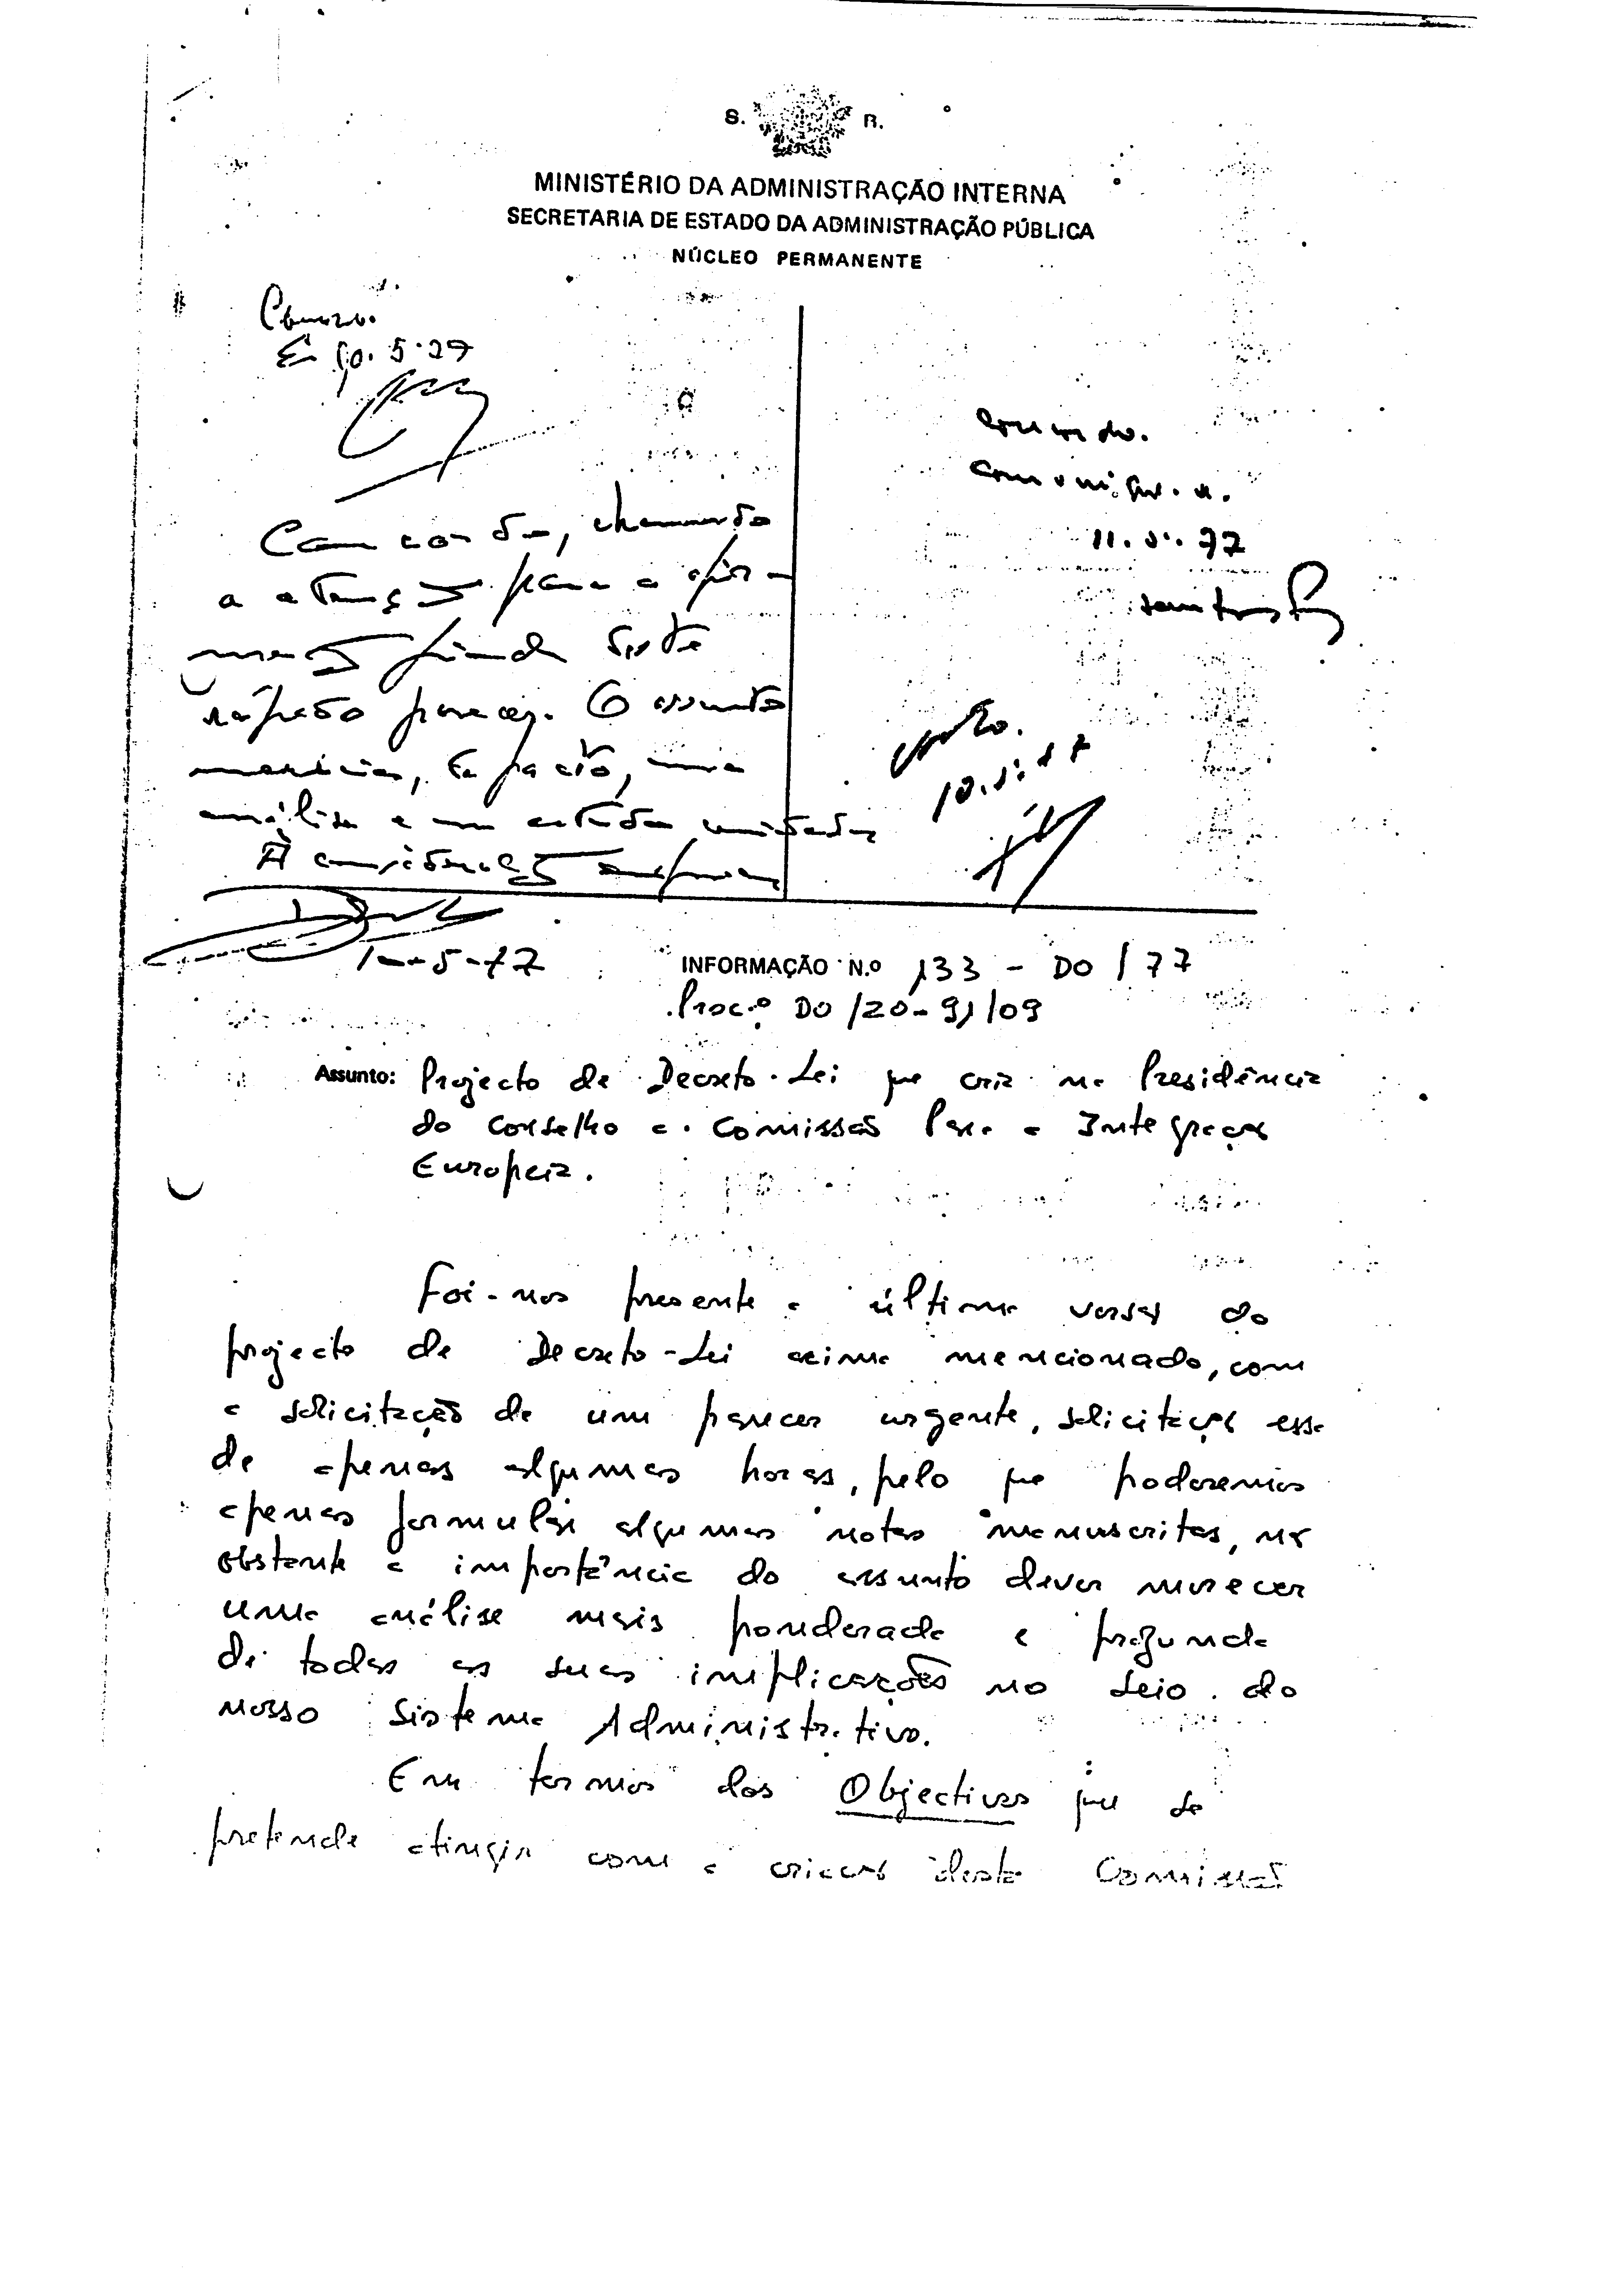 S. R.
MINISTÉRIO DA ADMINISTRAÇÃO INTERNA
SECRETARIA DE ESTADO DA ADMINISTRAÇÃO PÚBLICA
NÚCLEO PERMANENTE
10.5.77
Concordo, chamando
a atenção para a afir-
mação final deste
rápido parecer. O assunto
mereceria, de facto, uma
análise e um estudo cuidados
À consideração superior
10-5-77
Concordo.
11.5.77
Visto.
10.5.77
INFORMAÇÃO N.º 133 - DO / 77
Proc.º DO /20-91/09
Assunto: Projecto de Decreto-Lei que cria na Presidência
do Conselho a Comissão Para a Integração
Europeia.
Foi-nos presente a última versão do
projecto de Decreto-Lei acima mencionado, com
a solicitação de um parecer urgente, solicitação essa
de apenas algumas horas, pelo que poderemos
apenas formular algumas notas manuscritas, não
obstante a importância do assunto dever merecer
uma análise mais ponderada e profunda
de todas as suas implicações no seio do
nosso Sistema Administrativo.
Em termos dos Objectivos que se
pretende atingir com a criação desta Comissão